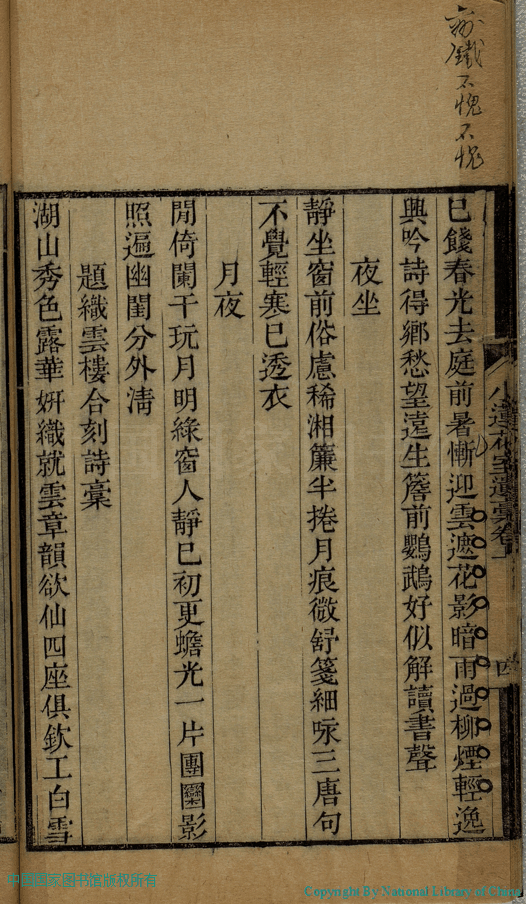 已餞春光去庭前暑慚迎雲遮花影暗雨過柳煙輕逸
興吟詩得鄉愁望遠生簷前鸚鵡好似解讀書聲
夜坐
靜坐窗前俗慮稀湘簾半捲月痕微舒箋細咏三唐句
不覺輕寒已透衣
月夜
閒倚闌干玩月明綠窗人靜已初更蟾光一片團圞影
照遍幽閨分外清
題織雲樓合刻詩稾
湖山秀色露華妍織就雲章韻欲仙四座俱欽工白雪
小蓮花室遺稾卷上
四
鐵不愧不愧
中国国家图书馆版权所有
Copyright By National Library of China